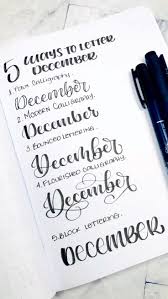 5 WAYS TO LETTER
DECEMBER
1. FAUX CALLIGRAPHY.
December
2. MODERN CALLIGRAPHY.
December
3. BOUNCED LETTERING.
December
4. FLOURISHED CALLIGRAPHY.
December
5. BLOCK LETTERING.
DECEMBER